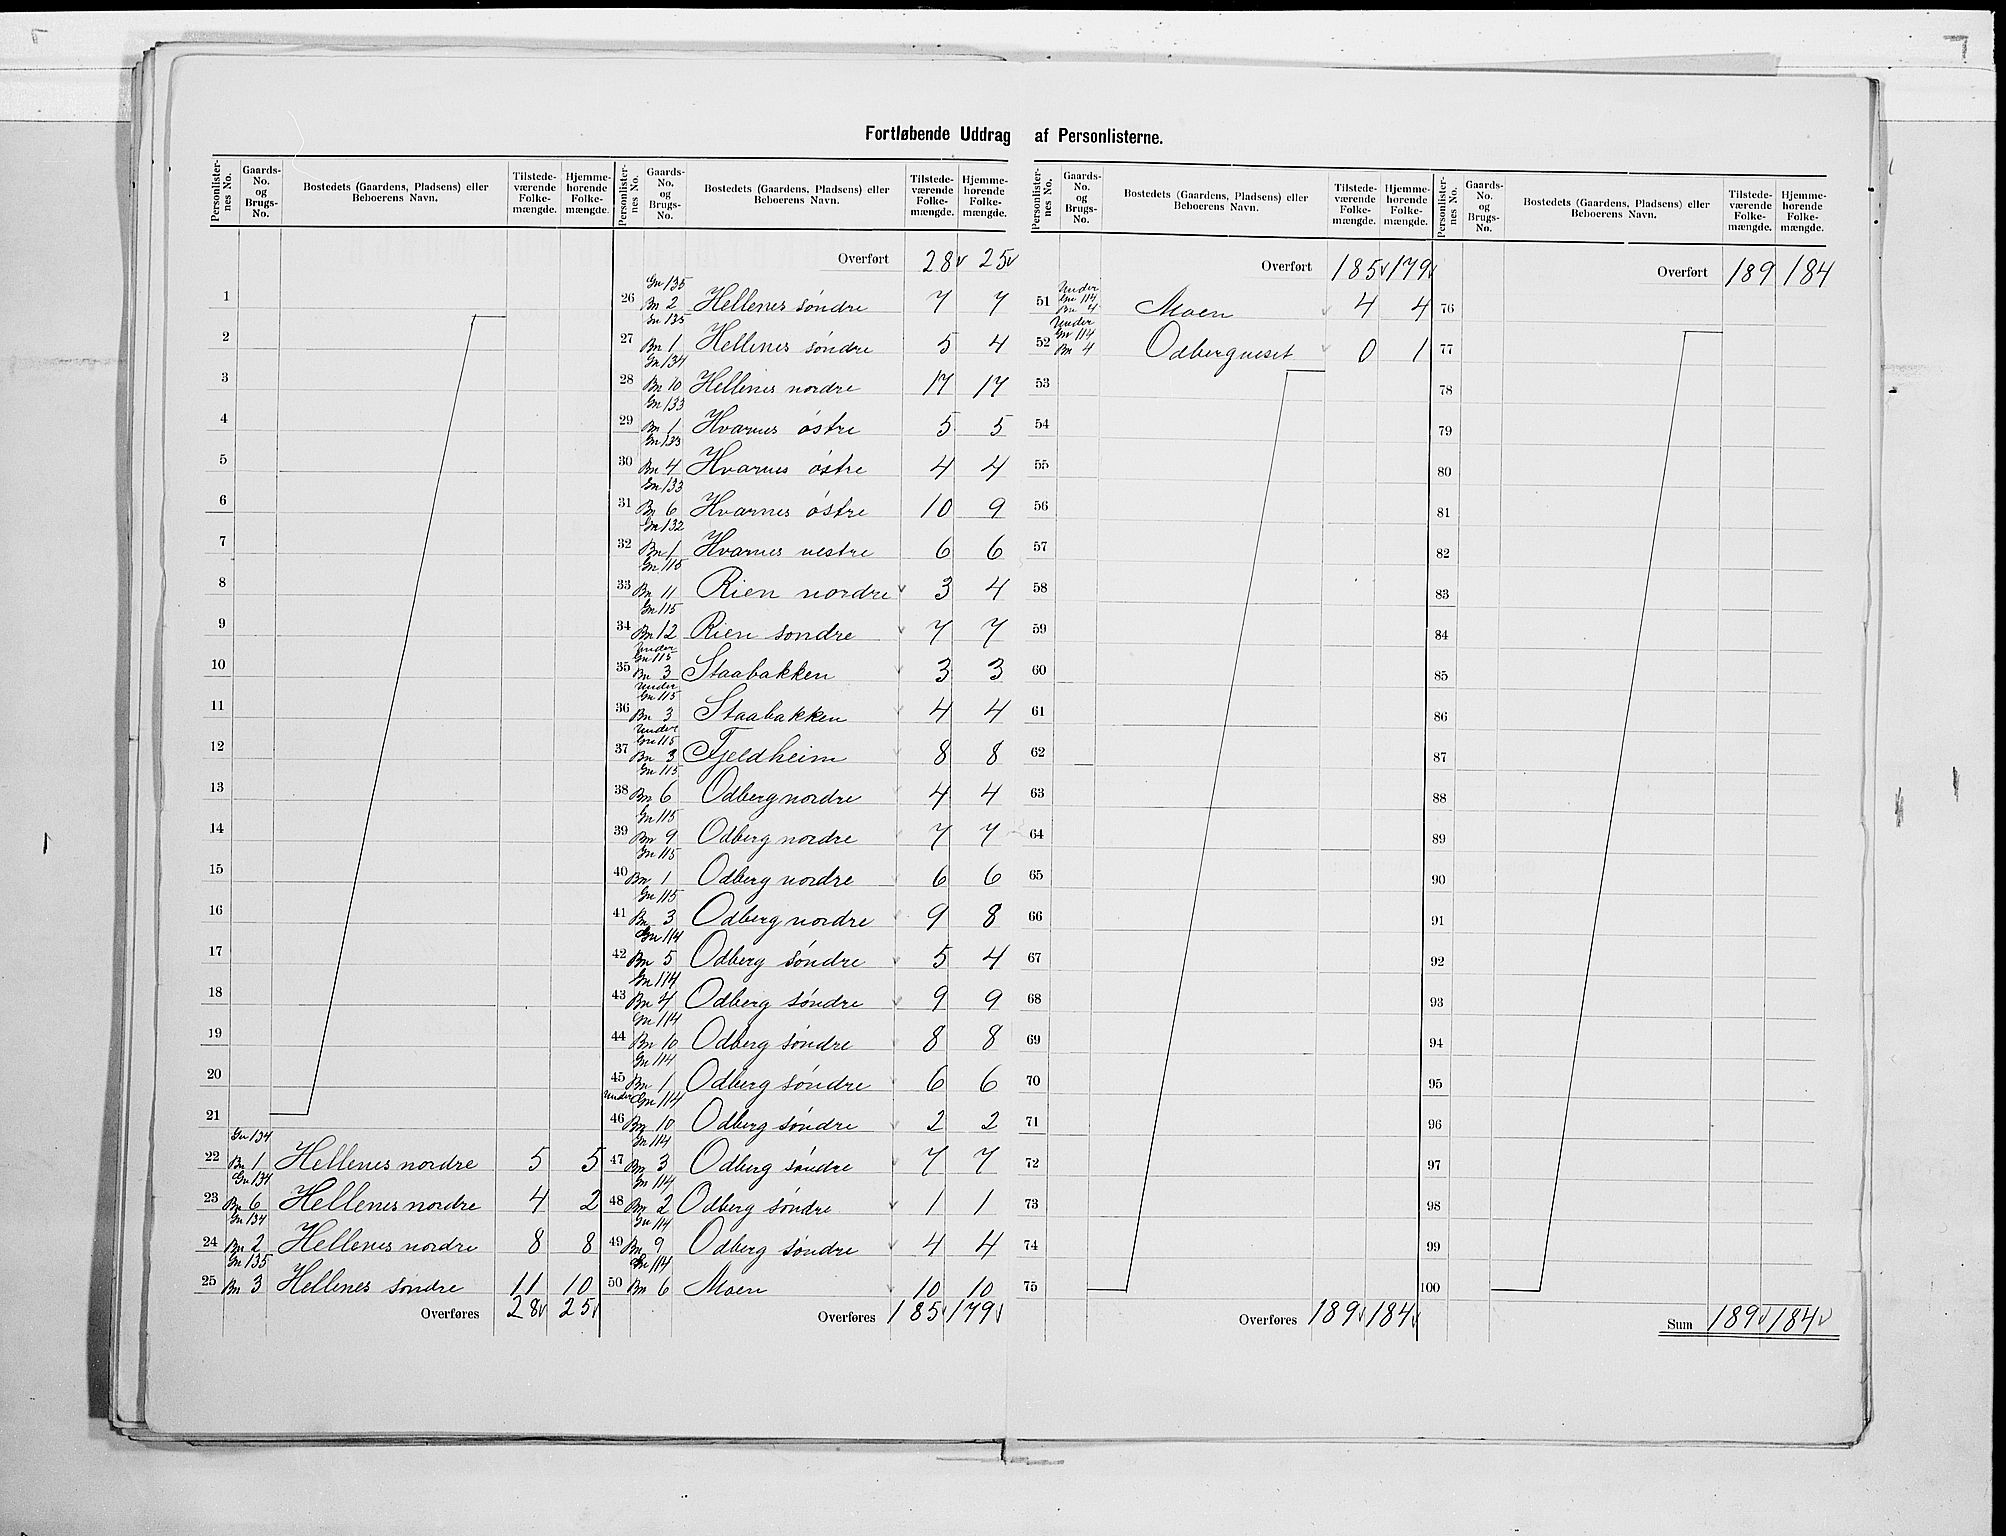 Fortløbende Uddrag af Personlisterne.
Personlisternes No. Gaards-No. og Brugs-No. Bostedets (Gaardens, Pladsens) eller Beboerens Navn. Tilstedeværende Folkemængde. Hjemmehørende Folkemængde.
1
2
3
4
5
6
7
8
9
10
11
12
13
14
15
16
17
18
19
20
21
22 Gn 134 Bn 1 Hellenes nordre 5 5
23 Gn 134 Bn 6 Hellenes nordre 4 2
24 Gn 134 Bn 2 Hellenes nordre 8 8
25 Gn 135 Bn 3 Hellenes søndre 11 10
Overføres 28 25
Personlisternes No. Gaards-No. og Brugs-No. Bostedets (Gaardens, Pladsens) eller Beboerens Navn. Tilstedeværende Folkemængde. Hjemmehørende Folkemængde.
Overført 28 25
26 Gn 135 Bn 2 Hellenes søndre 7 7
27 Gn 135 Bn 1 Hellenes søndre 5 4
28 Gn 134 Bn 10 Hellenes nordre 17 17
29 Gn 133 Bn 1 Hvarnes østre 5 5
30 Gn 133 Bn 4 Hvarnes østre 4 4
31 Gn 133 Bn 6 Hvarnes østre 10 9
32 Gn 132 Bn 1 Hvarnes vestre 6 6
33 Gn 115 Bn 11 Rien nordre 3 4
34 Gn 115 Bn 12 Rien søndre 7 7
35 Under Gn 115 Bn 3 Staabakken 3 3
36 Under Gn 115 Bn 3 Staabakken 4 4
37 Under Gn 115 Bn 3 Fjeldheim 8 8
38 Gn 115 Bn 6 Odberg nordre 4 4
39 Gn 115 Bn 9 Odberg nordre 7 7
40 Gn 115 Bn 1 Odberg nordre 6 6
41 Gn 115 Bn 3 Odberg nordre 9 8
42 Gn 114 Bn 5 Odberg søndre 5 4
43 Gn 114 Bn 4 Odberg søndre 9 9
44 Gn 114 Bn 10 Odberg søndre 8 8
45 Gn 114 Bn 1 Odberg søndre 6 6
46 Under Gn 114 Bn 10 Odberg søndre 2 2
47 Gn 114 Bn 3 Odberg søndre 7 7
48 Gn 114 Bn 2 Odberg søndre 1 1
49 Gn 114 Bn 9 Odberg søndre 4 4
50 Gn 114 Bn 6 Moen 10 10
Overføres 185 179
Personlisternes No. Gaards-No. og Brugs-No. Bostedets (Gaardens, Pladsens) eller Beboerens Navn. Tilstedeværende Folkemængde. Hjemmehørende Folkemængde.
Overført 185 179
51 Under Gn 114 Bn 4 Moen 4 4
52 Under Gn 114 Bn 4 Odbergneset 0 1
53
54
55
56
57
58
59
60
61
62
63
64
65
66
67
68
69
70
71
72
73
74
75
Overføres 189 184
Personlisternes No. Gaards-No. og Brugs-No. Bostedets (Gaardens, Pladsens) eller Beboerens Navn. Tilstedeværende Folkemængde. Hjemmehørende Folkemængde.
Overført 189 184
76
77
78
79
80
81
82
83
84
85
86
87
88
89
90
91
92
93
94
95
96
97
98
99
100
Sum 189 184